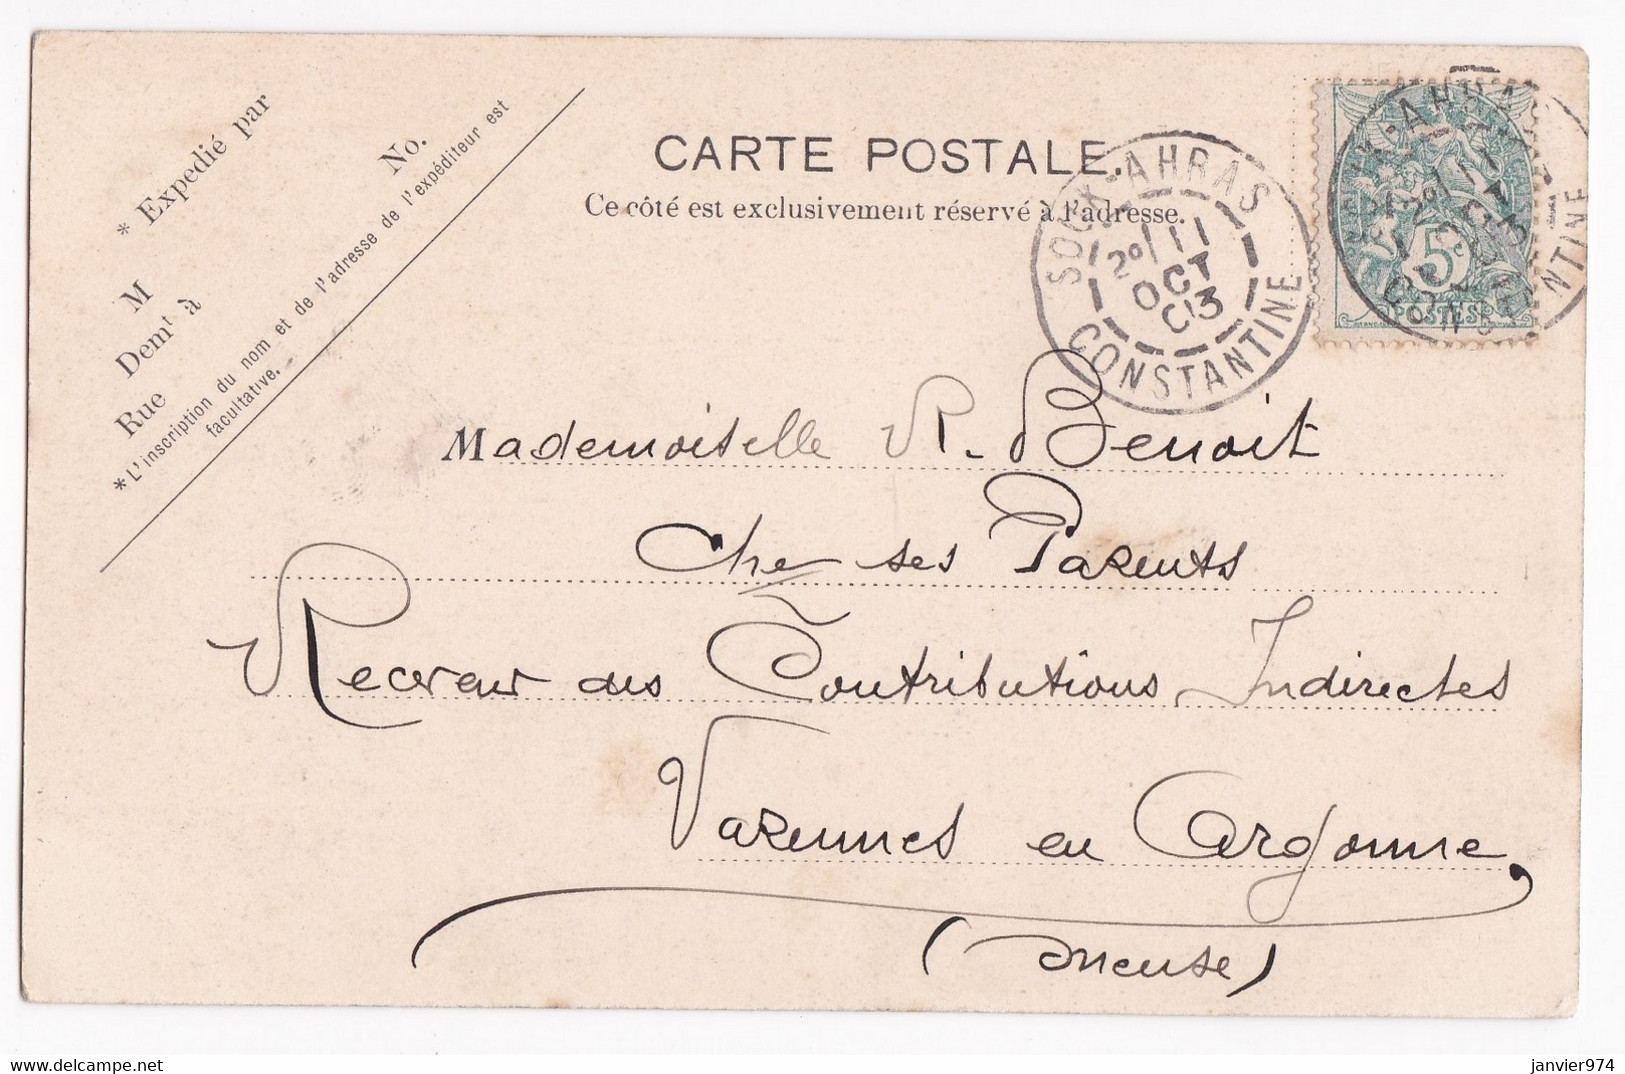 CARTE POSTALE.
Ce côté est exclusivement réservé à l'adresse.
* Expedié par
No.
M
Demt à
Rue
*L'inscription du nom et de l'adresse de l'expéditeur est
facultative.
SOUK-AHRAS
2e/11
OCT
03
CONSTANTINE
5
POSTES
Mademoiselle R. Benoit
Che ses Parents
Receveur des Contributions Indirectes
Varennes en Argonne,
(Meuse)
delcampe.net
janvier974